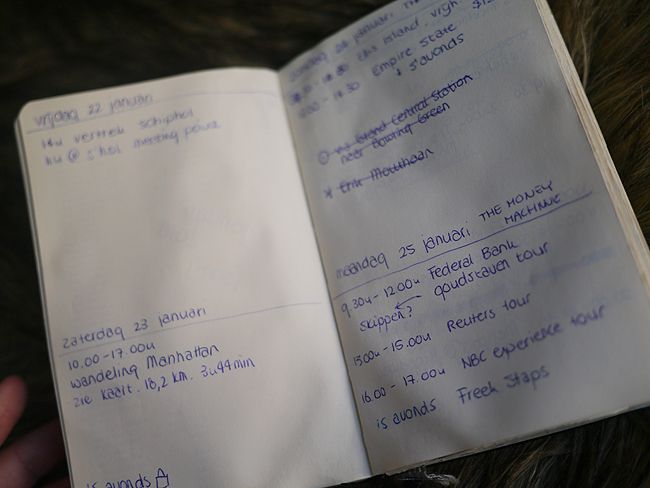 vrijdag 22 januari
14u vertrek schiphol
11u @ s'hol meeting point
zaterdag 23 januari
10.00-17.00u
wandeling Manhattan
zie kaart. 18,2 km. 3u44min
's avonds
zondag 24 januari THE
Ellis island. vrgh
Empire State
's avonds
Central Station
near Bowling Green
Erik Mouthaan
maandag 25 januari THE MONEY
MACHINE
9.30u-12.00u Federal Bank
skippen? goudstaven tour
15.00u Reuters tour
16.00 - 17.00u NBC experience tour
's avonds Freek Staps